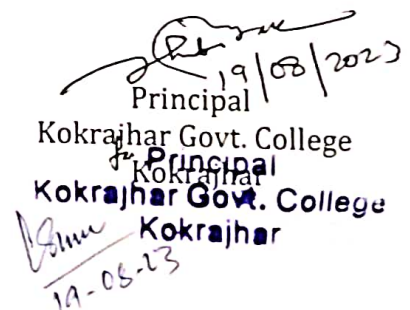 19/08/2023
Principal
Kokrajhar Govt. College
Kokrajhar
Principal
Kokrajhar Govt. College
Kokrajhar
19-08-23